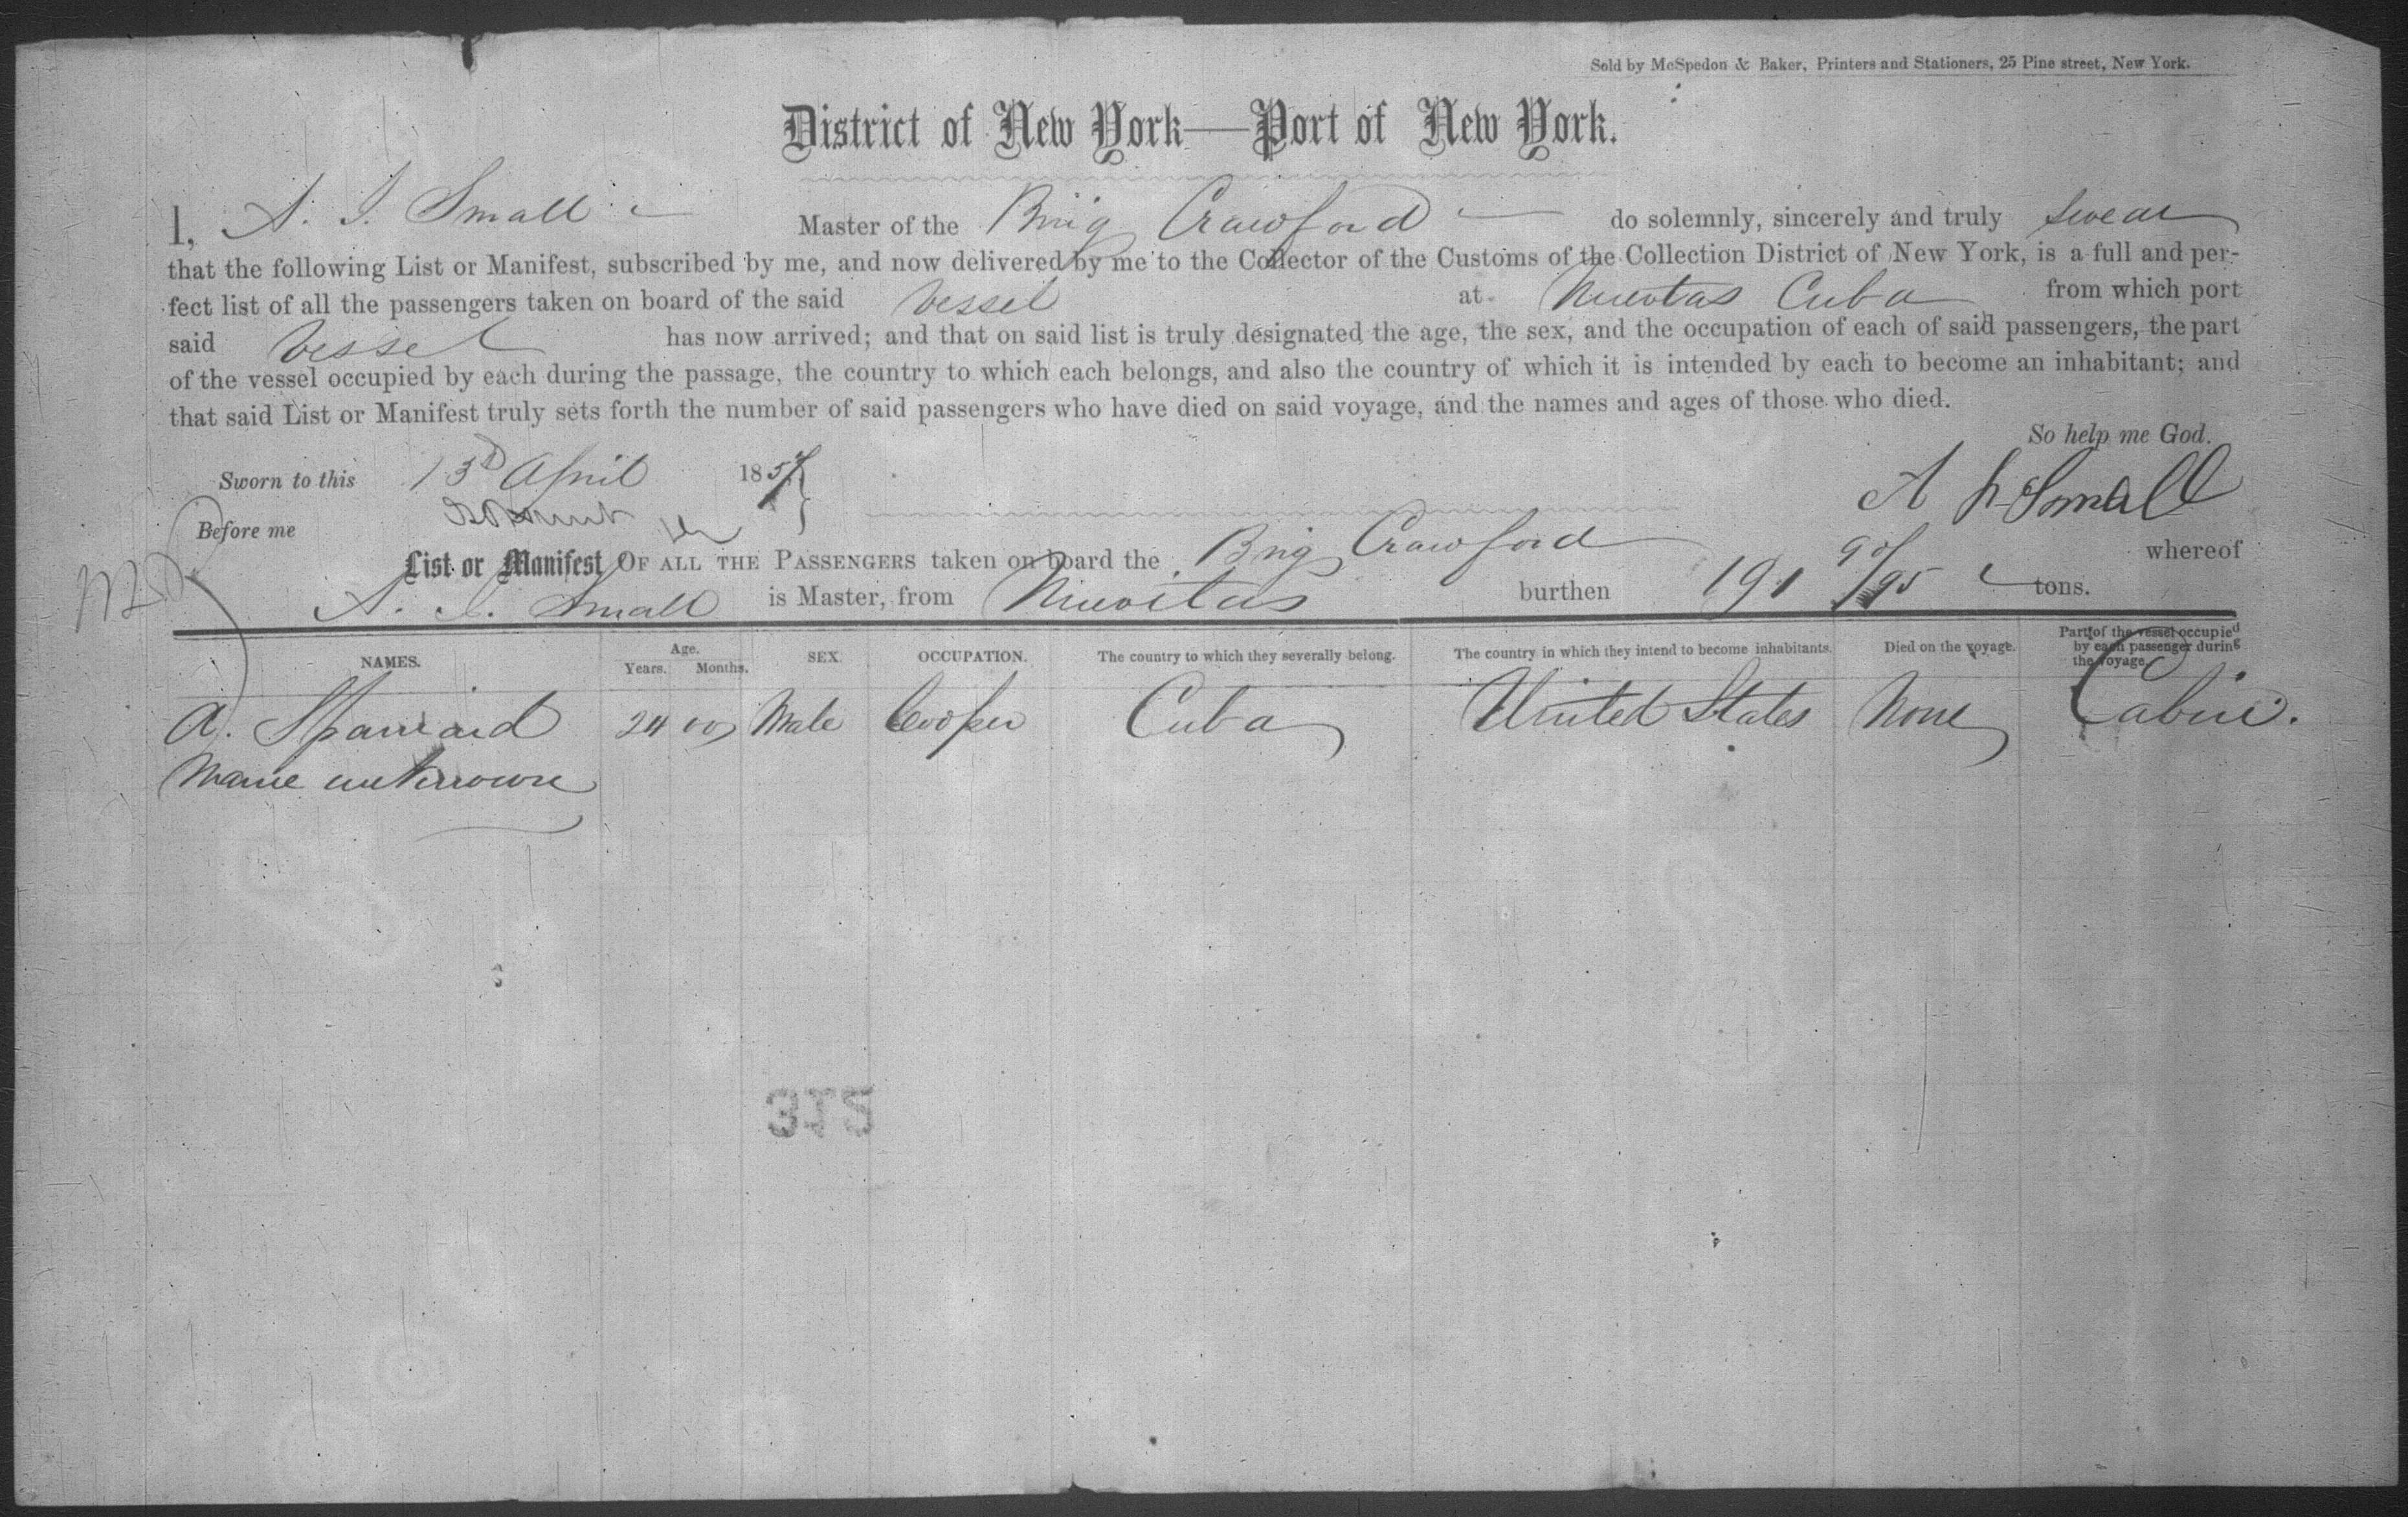 Sold by McSpedon & Baker, Printers and Stationers, 25 Pine street, New York.
District of New York—Port of New York.
I, A. I. Small Master of the Brig Crawford do solemnly, sincerely and truly swear
that the following List or Manifest, subscribed by me, and now delivered by me to the Collector of the Customs of the Collection District of New York, is a full and per-
fect list of all the passengers taken on board of the said vessel at Nuevtas Cuba from which port
said vessel has now arrived; and that on said list is truly designated the age, the sex, and the occupation of each of said passengers, the part
of the vessel occupied by each during the passage, the country to which each belongs, and also the country of which it is intended by each to become an inhabitant; and
that said List or Manifest truly sets forth the number of said passengers who have died on said voyage, and the names and ages of those who died.
So help me God.
Sworn to this 13th April 1857 A Small
Before me
List or Manifest OF ALL THE PASSENGERS taken on board the Brig Crawford whereof
A. I. Small is Master, from Nuevitas burthen 191 90/95 tons.
NAMES. Age. Years. Months. SEX. OCCUPATION. The country to which they severally belong. The country in which they intend to become inhabitants. Died on the voyage. Part of the vessel occupied by each passenger during the voyage.
A. Spaniard 24 00 Male Cooper Cuba United States None Cabin.
Name unknown
312